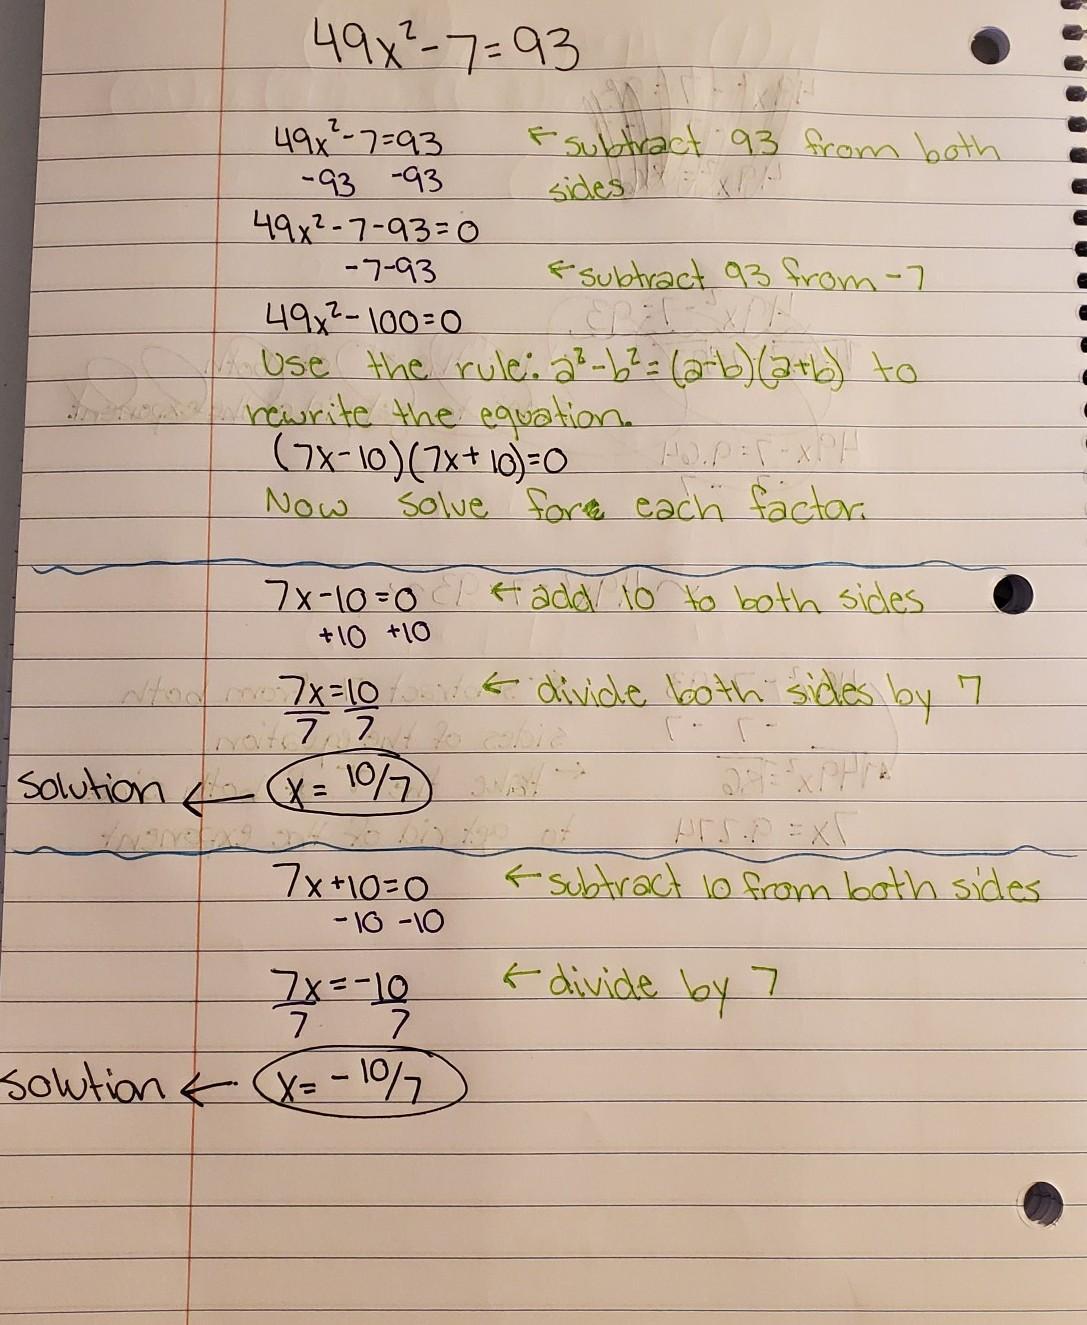 49x²-7=93
49x²-7=93 ← subtract 93 from both
-93 -93 sides
49x²-7-93=0
-7-93 ← subtract 93 from -7
49x²-100=0
Use the rule: a²-b²=(a-b)(a+b) to
rewrite the equation.
(7x-10)(7x+10)=0
Now solve for each factor.
7x-10=0 ← add 10 to both sides
+10 +10
7x=10 ← divide both sides by 7
7 7
Solution ← x= 10/7
7x+10=0 ← subtract 10 from both sides
-10 -10
7x=-10 ← divide by 7
7 7
Solution ← x= -10/7